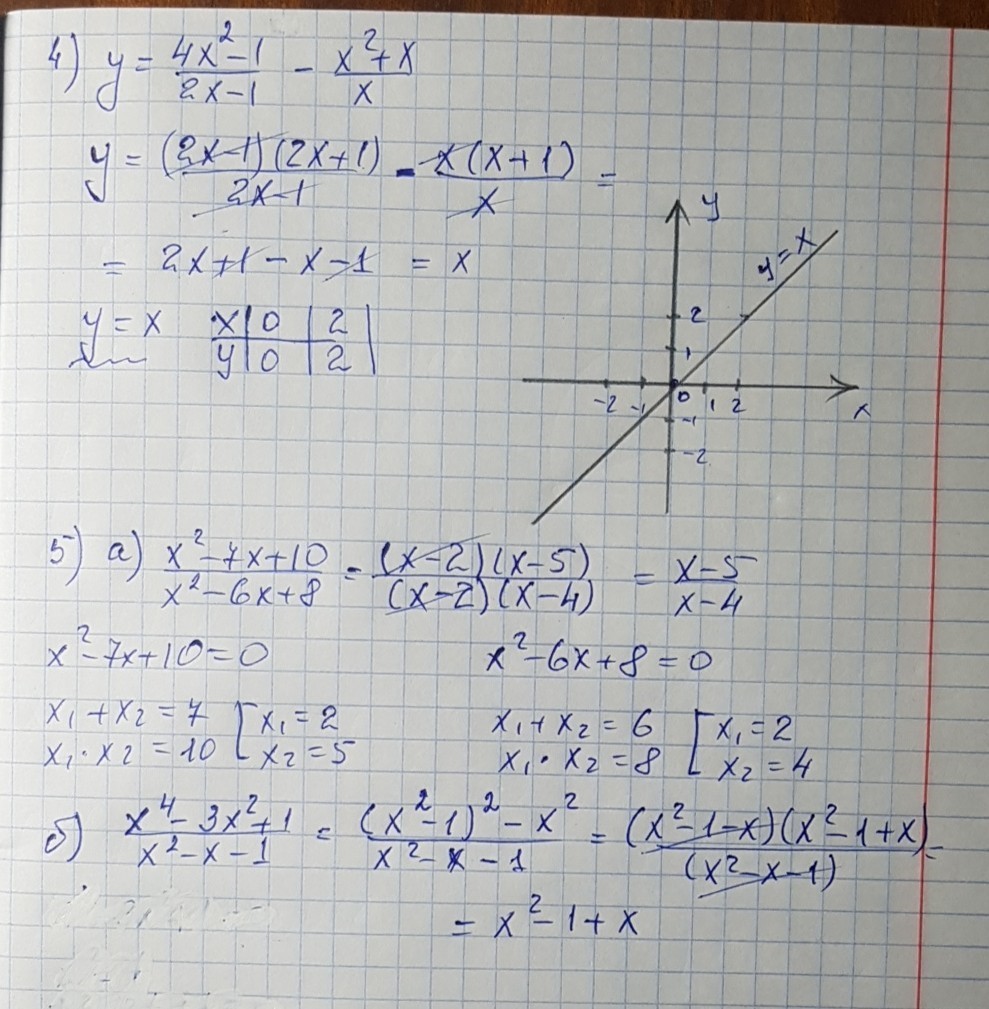 4) y = (4x² - 1)/(2x - 1) - (x² + x)/x
y = (2x-1)(2x+1)/(2x-1) - x(x+1)/x =
= 2x + 1 - x - 1 = x
y = x
x | 0 | 2
y | 0 | 2
y
y = x
2
1
-2 -1 0 1 2 x
-1
-2
5) а) (x² - 7x + 10)/(x² - 6x + 8) = (x-2)(x-5)/(x-2)(x-4) = (x-5)/(x-4)
x² - 7x + 10 = 0 x² - 6x + 8 = 0
x₁ + x₂ = 7 [ x₁ = 2 x₁ + x₂ = 6 [ x₁ = 2
x₁ · x₂ = 10 [ x₂ = 5 x₁ · x₂ = 8 [ x₂ = 4
б) (x⁴ - 3x² + 1)/(x² - x - 1) = ((x² - 1)² - x²)/(x² - x - 1) = (x² - 1 - x)(x² - 1 + x)/(x² - x - 1) =
= x² - 1 + x